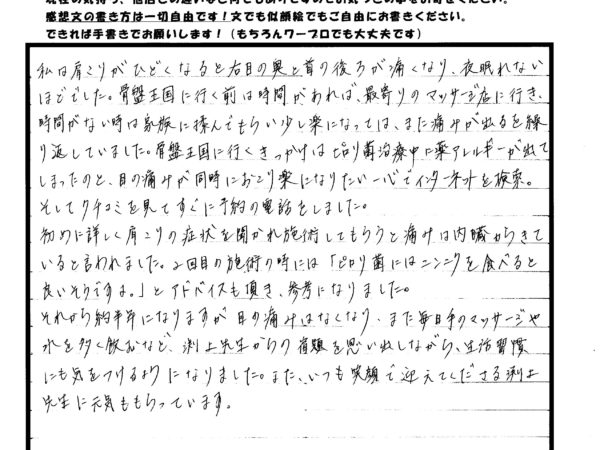 感想文の書き方は一切自由です！文でも似顔絵でもご自由にお書きください。
できれば手書きでお願いします！（もちろんワープロでも大丈夫です）
私は肩こりがひどくなると右目の奥と首の後ろが痛くなり、夜眠れない
ほどでした。骨盤王国に行く前は時間があれば、最寄りのマッサージ店に行き、
時間がない時は家族に揉んでもらい少し楽になっては、また痛みが出るを繰
り返していました。骨盤王国に行くきっかけはピロリ菌治療中に薬アレルギーが出て
しまったのと、目の痛みが同時におこり楽になりたい一心でインターネットを検索。
そしてクチコミを見てすぐに予約の電話をしました。
初めに詳しく肩こりの症状を聞かれ施術してもらうと痛みは内臓からきて
いると言われました。2回目の施術の時には「ピロリ菌にはニンニクを食べると
良いそうですよ。」とアドバイスも頂き、参考になりました。
それから約半年になりますが目の痛みはなくなり、また毎日手のマッサージや
水を多く飲むなど、渕上先生からの宿題を思い出しながら、生活習慣
にも気をつけるようになりました。また、いつも笑顔で迎えてくださる渕上
先生に元気ももらっています。